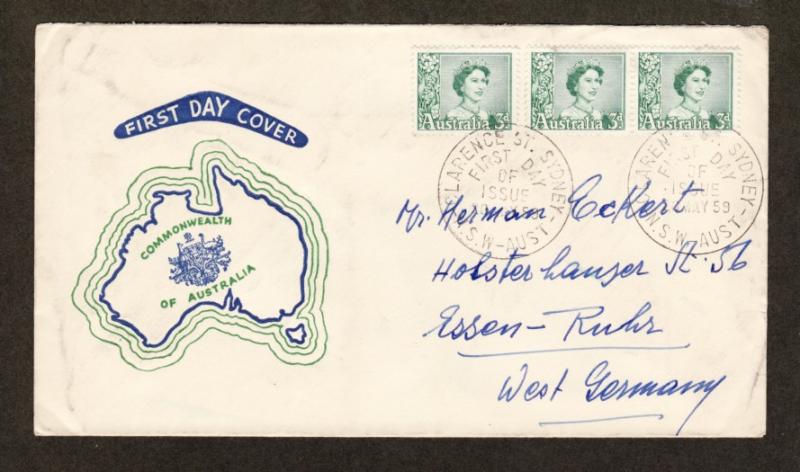 FIRST DAY COVER
COMMONWEALTH
OF AUSTRALIA
Australia 3d
Australia 3d
Australia 3d
CLARENCE ST. SYDNEY
FIRST DAY
OF
ISSUE
MAY 59
N.S.W-AUST
CLARENCE ST. SYDNEY
FIRST DAY
OF
ISSUE
MAY 59
N.S.W-AUST
Mr. Herman Eckert
Holsterhauser St. 56
Essen-Ruhr
West Germany